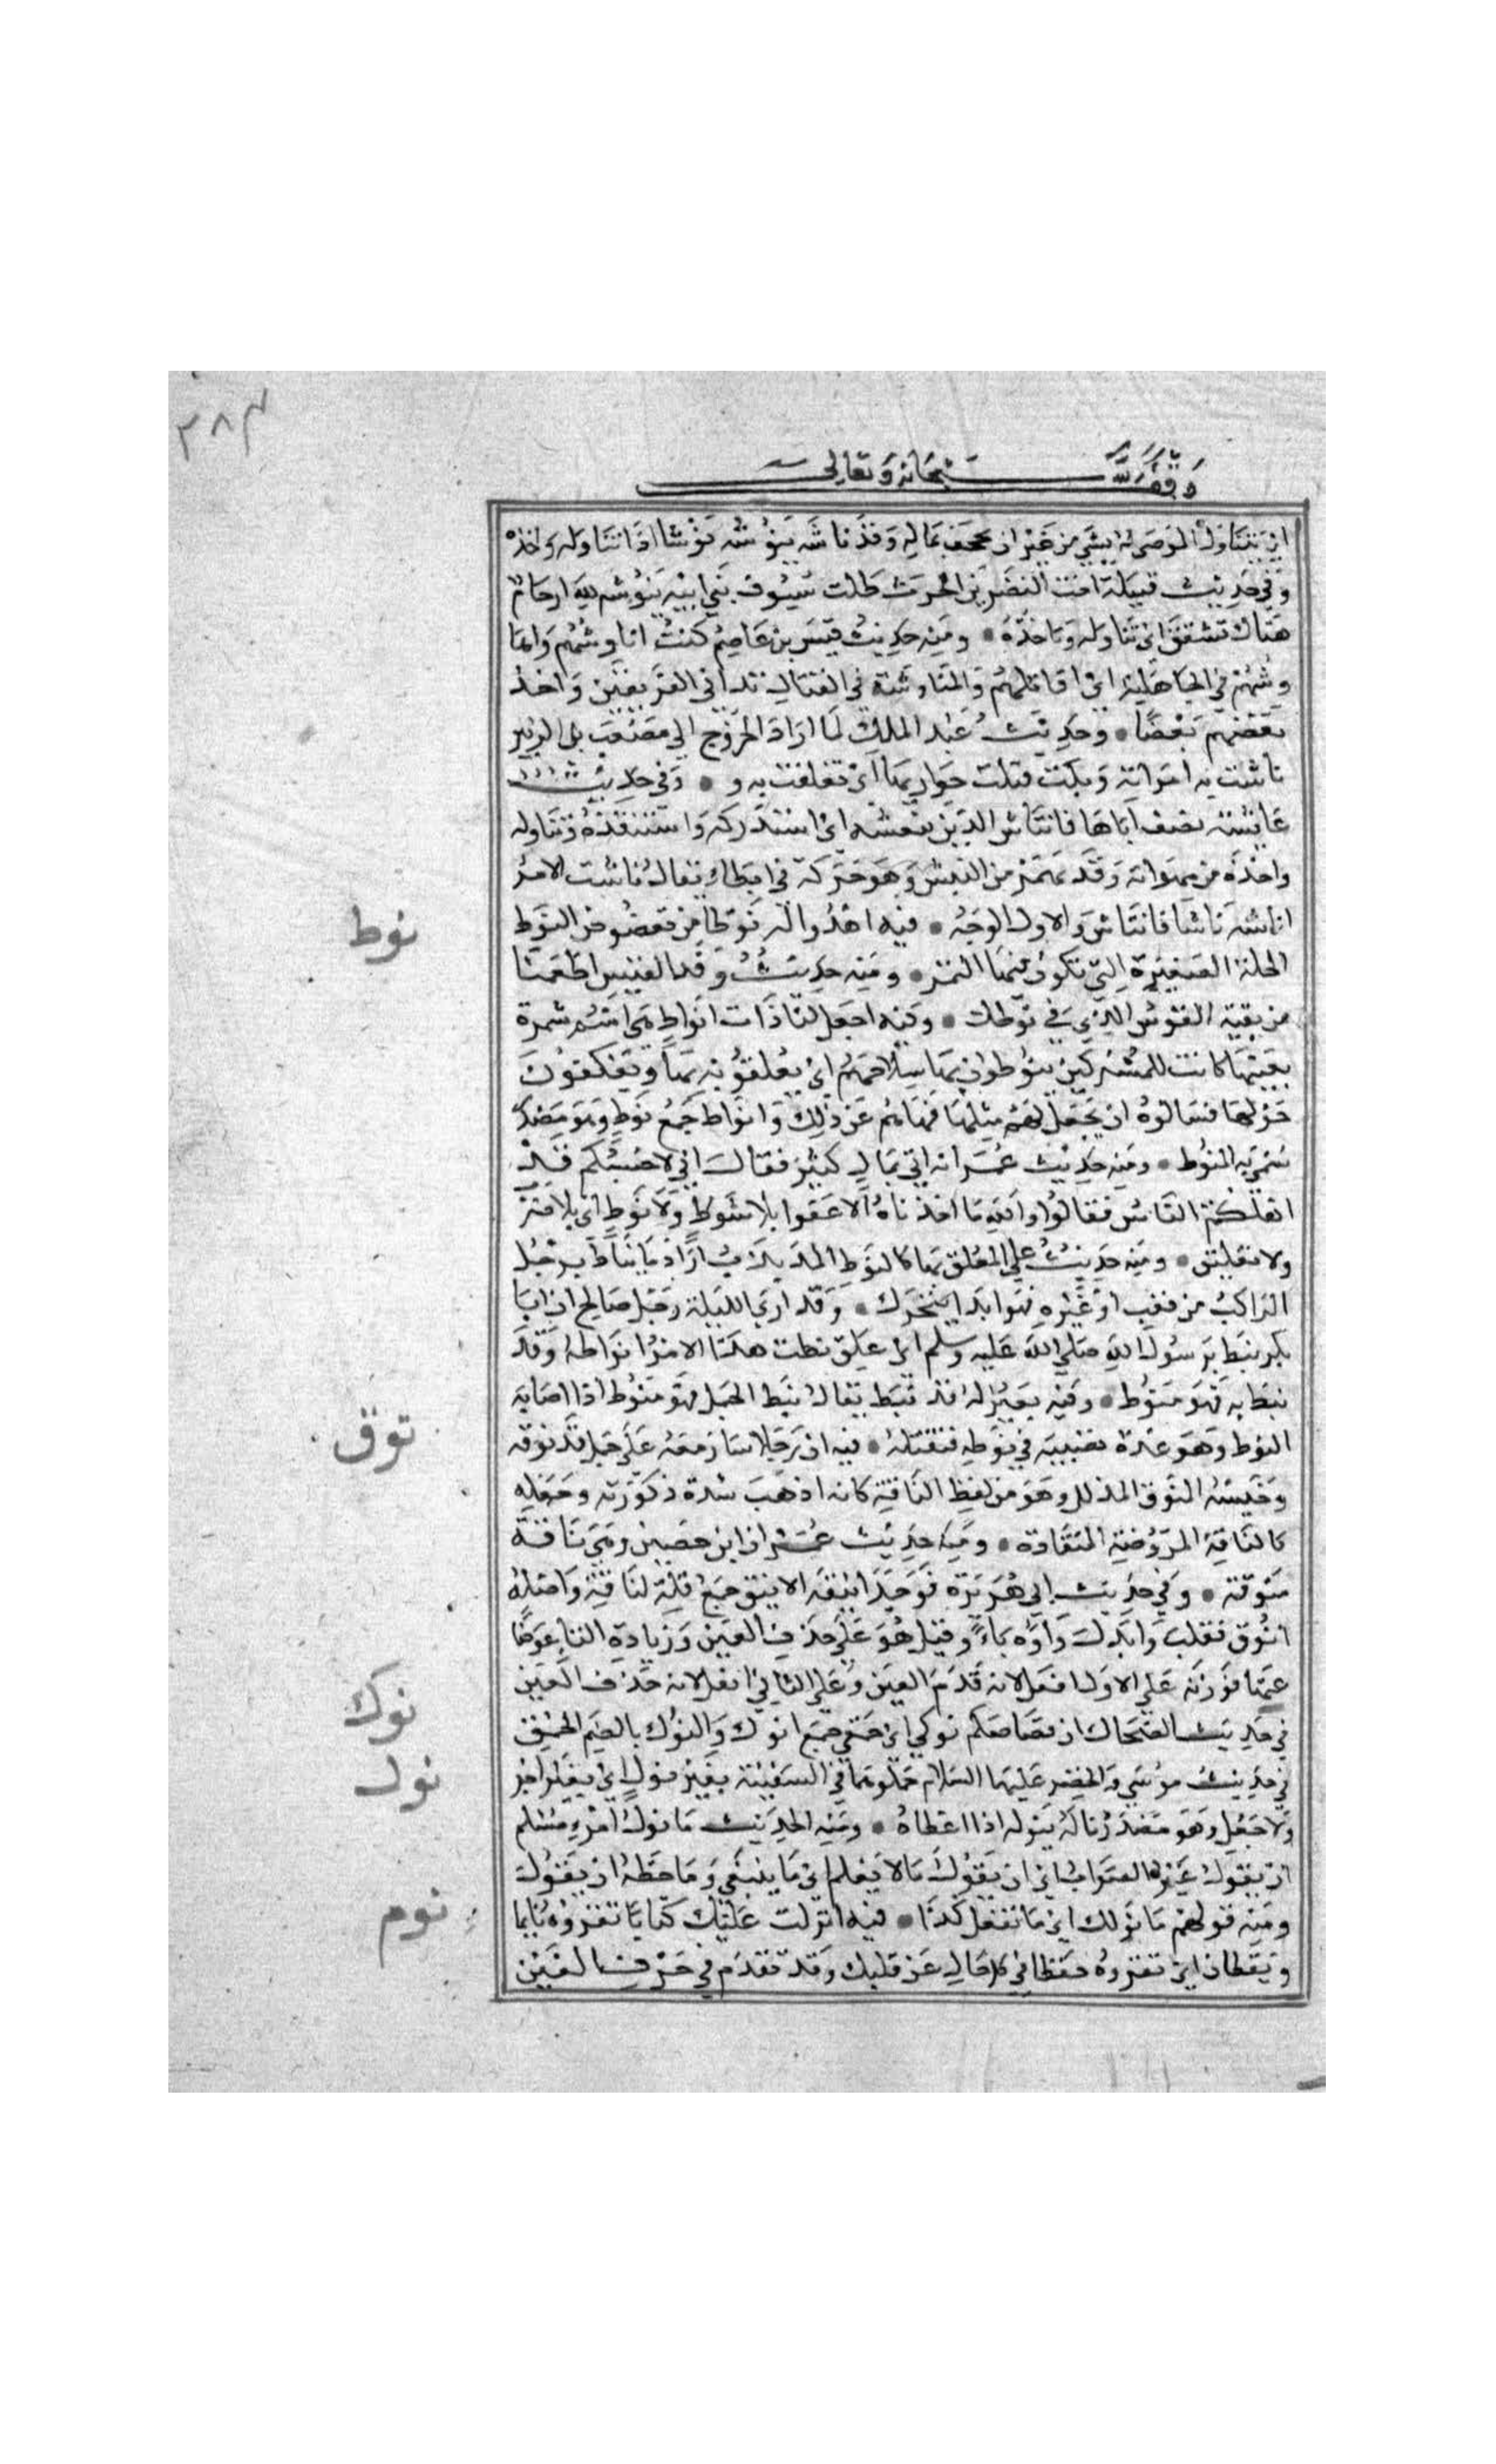 ٣٨٣
وقف لله سبحانه وتعالى
اي يتناول الموصى له بشي من غير ان يجحف بماله وقد ناشه ينوشه نوشا اذا تناوله واخذه
وفي حديث قتيلة اخت النضر بن الحرث ظلت سيوف بني ابيه تنوشه لله ارحام
هناك تشقق اي تتناوله وتاخذه • ومنه حديث قيس بن عاصم كنت اناوشهم واهاوشهم
في الجاهلية اي اقاتلهم والمناوشة في القتال تداني الفريقين واخذ
بعضهم بعضا • وحديث عبد الملك لما اراد الخروج الى مصعب بن الزبير
ناشت به امراته وبكت فبكت جواريها اي تعلقت به و • وفي حديث
عايشة تصف اباها فانتاش الدين بنعشه اي استدركه واستنقذه وتناوله
واخذه من مهواته وقد يهمز من النيش وهو حركة في ابطاء يقال ناشت الامر
اناشه ناشا فانتاش والاول الوجه • فيه اهدوا له نوطا من تعضوض النوط
الجلة الصغيرة التي تكون فيها التمر • ومنه حديث وفد القيس اطعمنا
من بقية القوس الذي في نوطك • وفيه اجعل لنا ذات انواط هي اسم شجرة
بعينها كانت للمشركين ينوطون بها سلاحهم اي يعلقونه بها ويعكفون
حولها فسالوه ان يجعل لهم مثلها فنهاهم عن ذلك وانواط جمع نوط وهو مصدر
سمي به المنوط • ومنه حديث عمر انه اتي بمال كثير فقال اني لاحسبكم قد
اهلكتم الناس فقالوا والله ما اخذناه الا عفوا بلا سوط ولا نوط اي بلا ضرب
ولا تعليق • ومنه حديث علي المعلق بها كالنوط المذبذب اراد ما يناط برحل
الراكب من قعب او غيره فهو ابدا يتحرك • وقد اري الليلة رجل صالح ان ابا
بكر نيط برسول الله صلى الله عليه وسلم اي علق نطت هذا الامر انوطه وقد
نيط به فهو منوط • وفيه بعير له قد نيط يقال نيط الجمل فهو منوط اذا اصابه
النوط وهو غدة تصيبه في نوطه فتقتله • فيه ان رجلا سار معه على جمل قد نوقه
وخيسه النوق المذلل وهو من لفظ الناقة كانه اذهب شدة ذكورته وجعله
كالناقة المروضة المنقادة • ومنه حديث عمران ابن حصين وهي ناقة
منوقة • وفي حديث ابي هريرة فوجد اينقه الاينق جمع قلة لناقة واصله
انوق فقلب وابدل واوه ياء وقيل هو على حذف العين وزيادة اليا عوضا
عنها فوزنه على الاول اعفل لانه قدم العين وعلى الثاني ايفل لانه حذف العين
في حديث الضحاك ان قصاصكم نوكى اي حمقى جمع انوك والنوك بالضم الحمق
في حديث موسى والخضر عليهما السلام حملوهما في السفينة بغير نول اي بغير اجر
ولا جعل وهو مصدر ناله ينوله اذا اعطاه • ومنه الحديث ما نول امرء مسلم
ان يقول غير الصواب اي ان يقول ما لا يعلم اي ما ينبغي وما حظه ان يقول
ومنه قولهم ما نولك اي ما تفعل كذا • فيه انزلت عليك كتابا تقروه نايما
ويقظان اي تقروه حفظا في كل حال عن قلبك وقد تقدم في حرف الغين
نوط
توق
نوك
نول
نوم